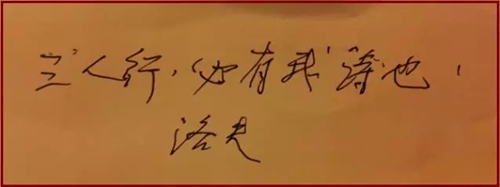 三人行，必有我诗也，
洛夫